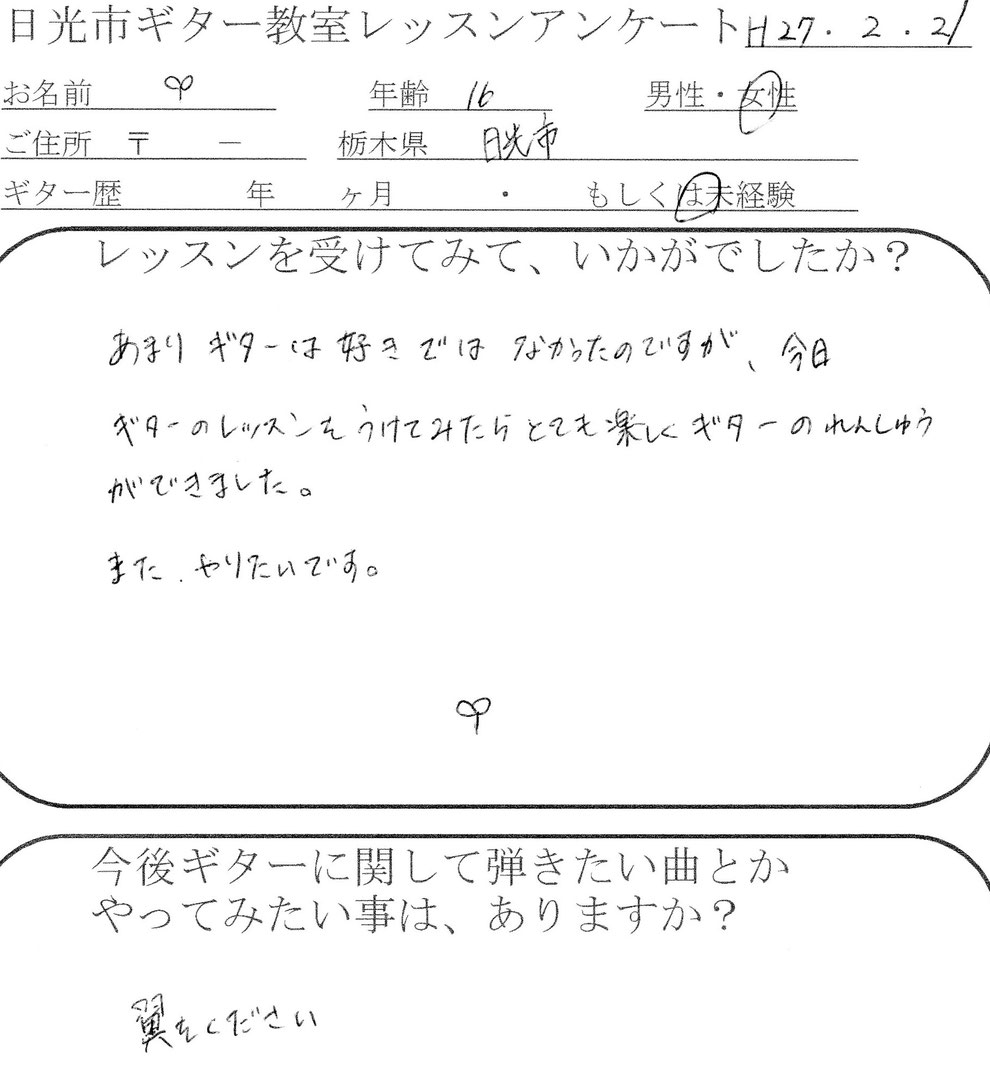 日光市ギター教室レッスンアンケート H27.2.21
お名前 年齢 16 男性・女性
ご住所 〒 － 栃木県 日光市
ギター歴 年 ヶ月 ・ もしくは未経験
レッスンを受けてみて、いかがでしたか？
あまりギターは好きではなかったのですが、今日
ギターのレッスンをうけてみたらとても楽しくギターのれんしゅう
ができました。
また、やりたいです。
今後ギターに関して弾きたい曲とか
やってみたい事は、ありますか？
翼をください